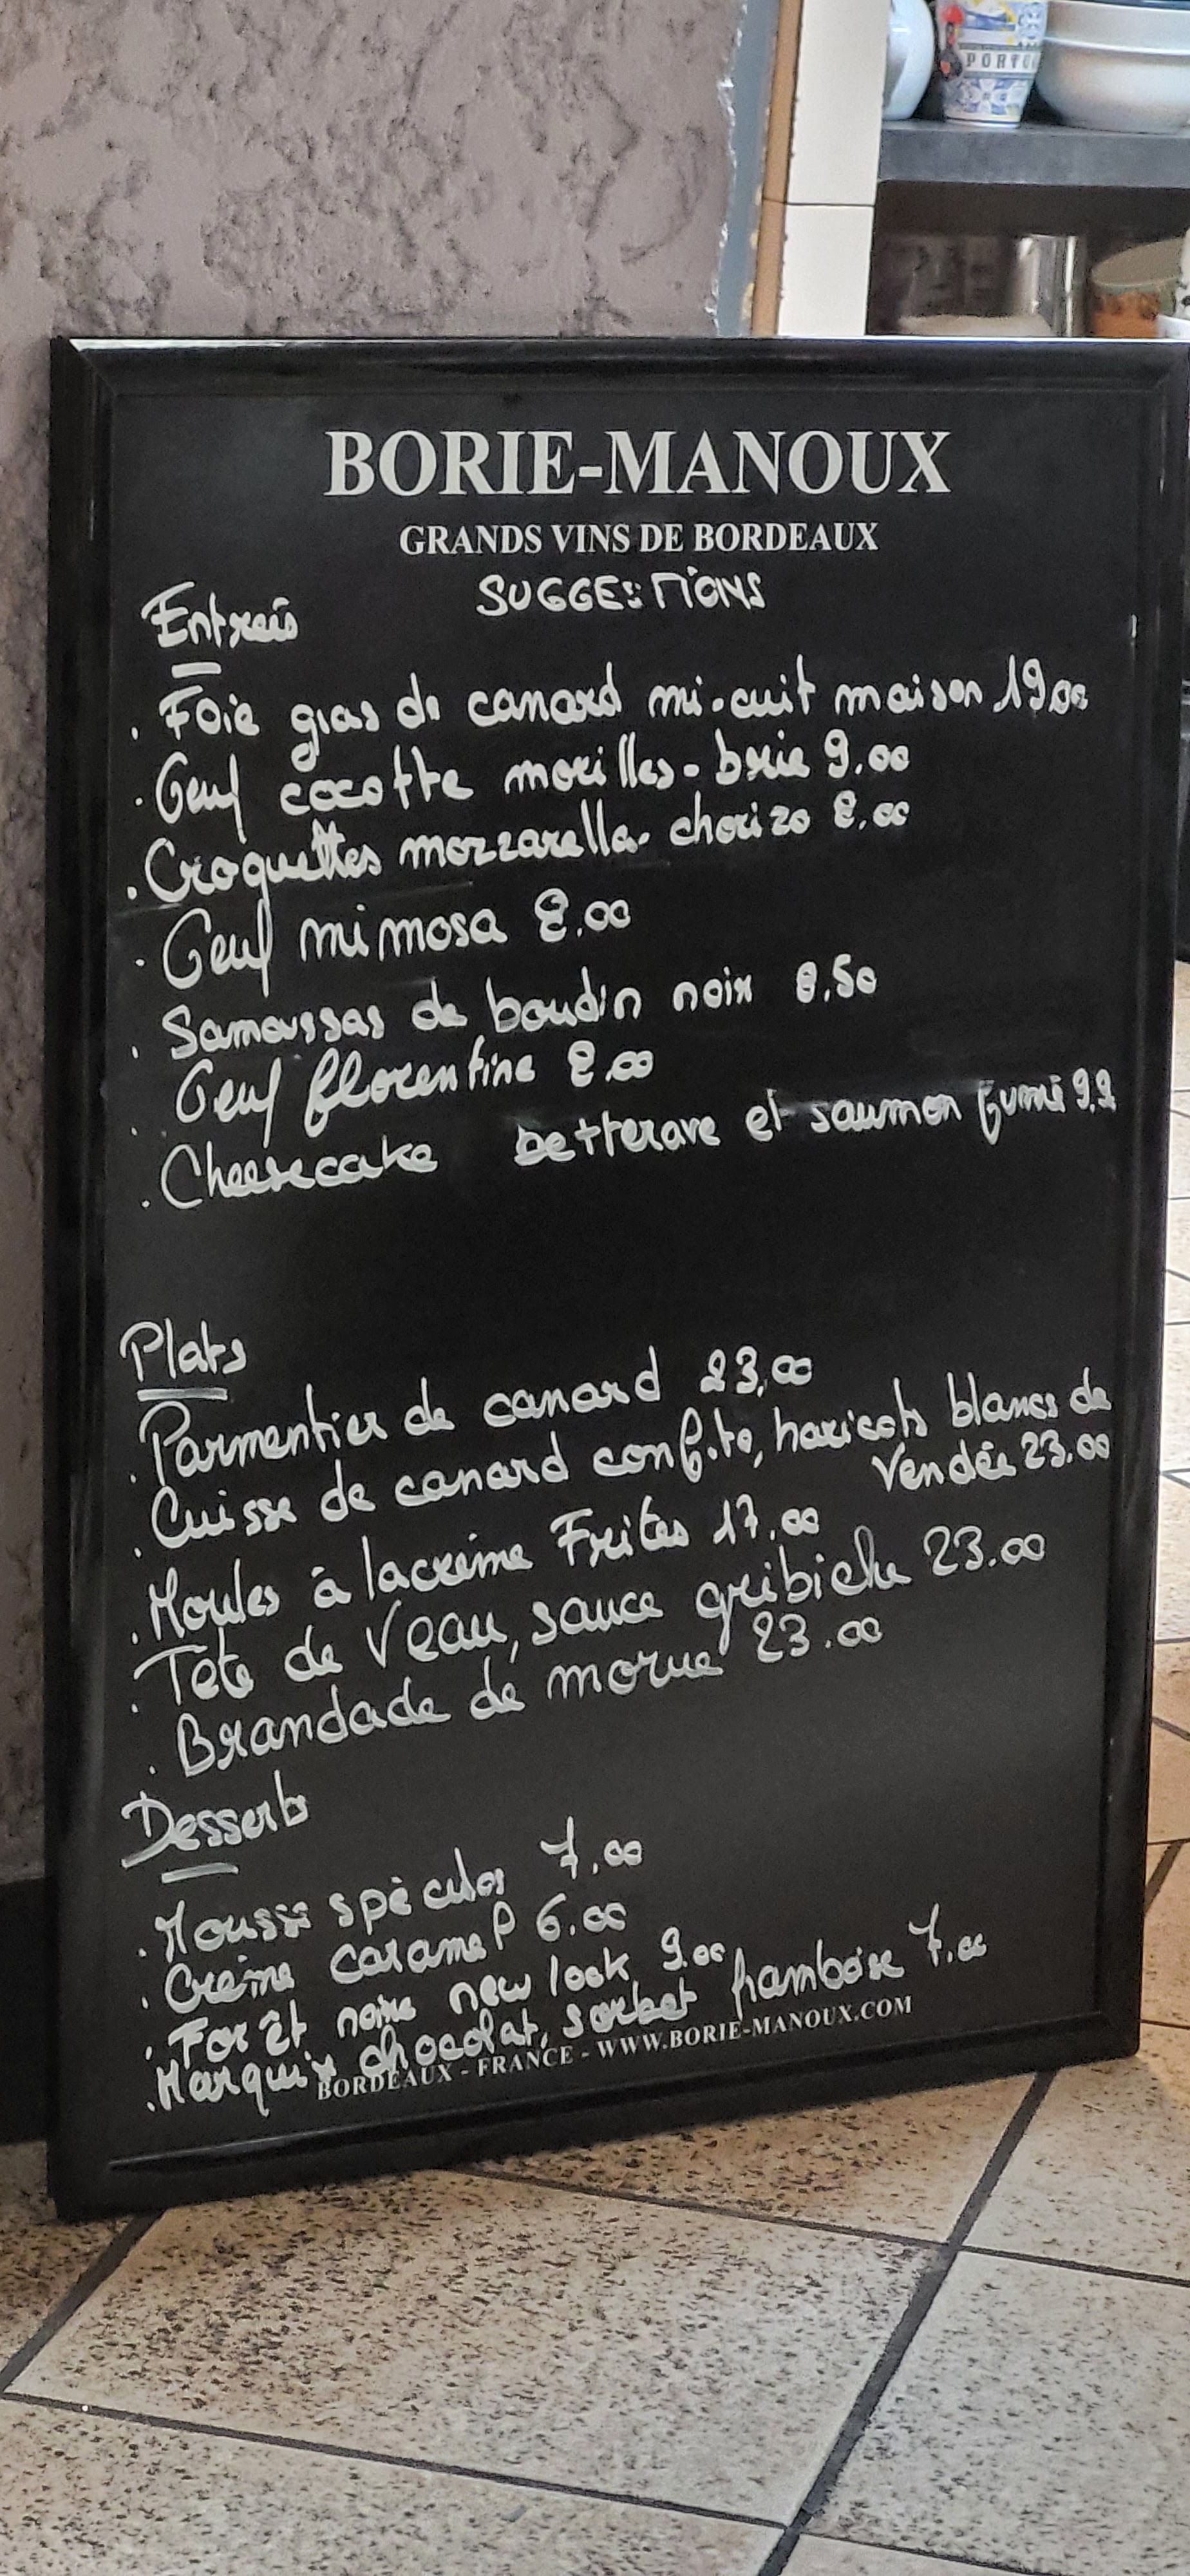 PORTO
BORIE-MANOUX
GRANDS VINS DE BORDEAUX
SUGGESTIONS
Entrées
. Foie gras de canard mi.cuit maison 19.00
. Oeuf cocotte morilles - brie 9.00
. Croquettes mozzarella - chorizo 8.00
. Oeuf mimosa 8.00
. Samoussas de boudin noir 8.50
. Oeuf florentine 8.00
. Cheesecake betterave et saumon fumé 9.9
Plats
. Parmentier de canard 23.00
. Cuisse de canard confite, haricots blancs de
Vendée 23.00
. Moules à la crème Frites 17.00
. Tête de Veau, sauce gribiche 23.00
. Brandade de morue 23.00
Desserts
. Mousse spéculos 7.00
. Crème caramel 6.00
. Forêt noire new look 9.00
. Marquix chocolat, sorbet framboise 7.00
BORDEAUX - FRANCE - WWW.BORIE-MANOUX.COM